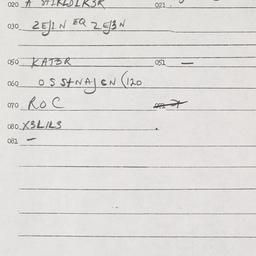 020 A 021
030 2EJ1N EQ 2EJ3N
050 KAT3R 051 —
060 OSSTNAJEN (120
070 ROC
080 X3L1L3
081 —